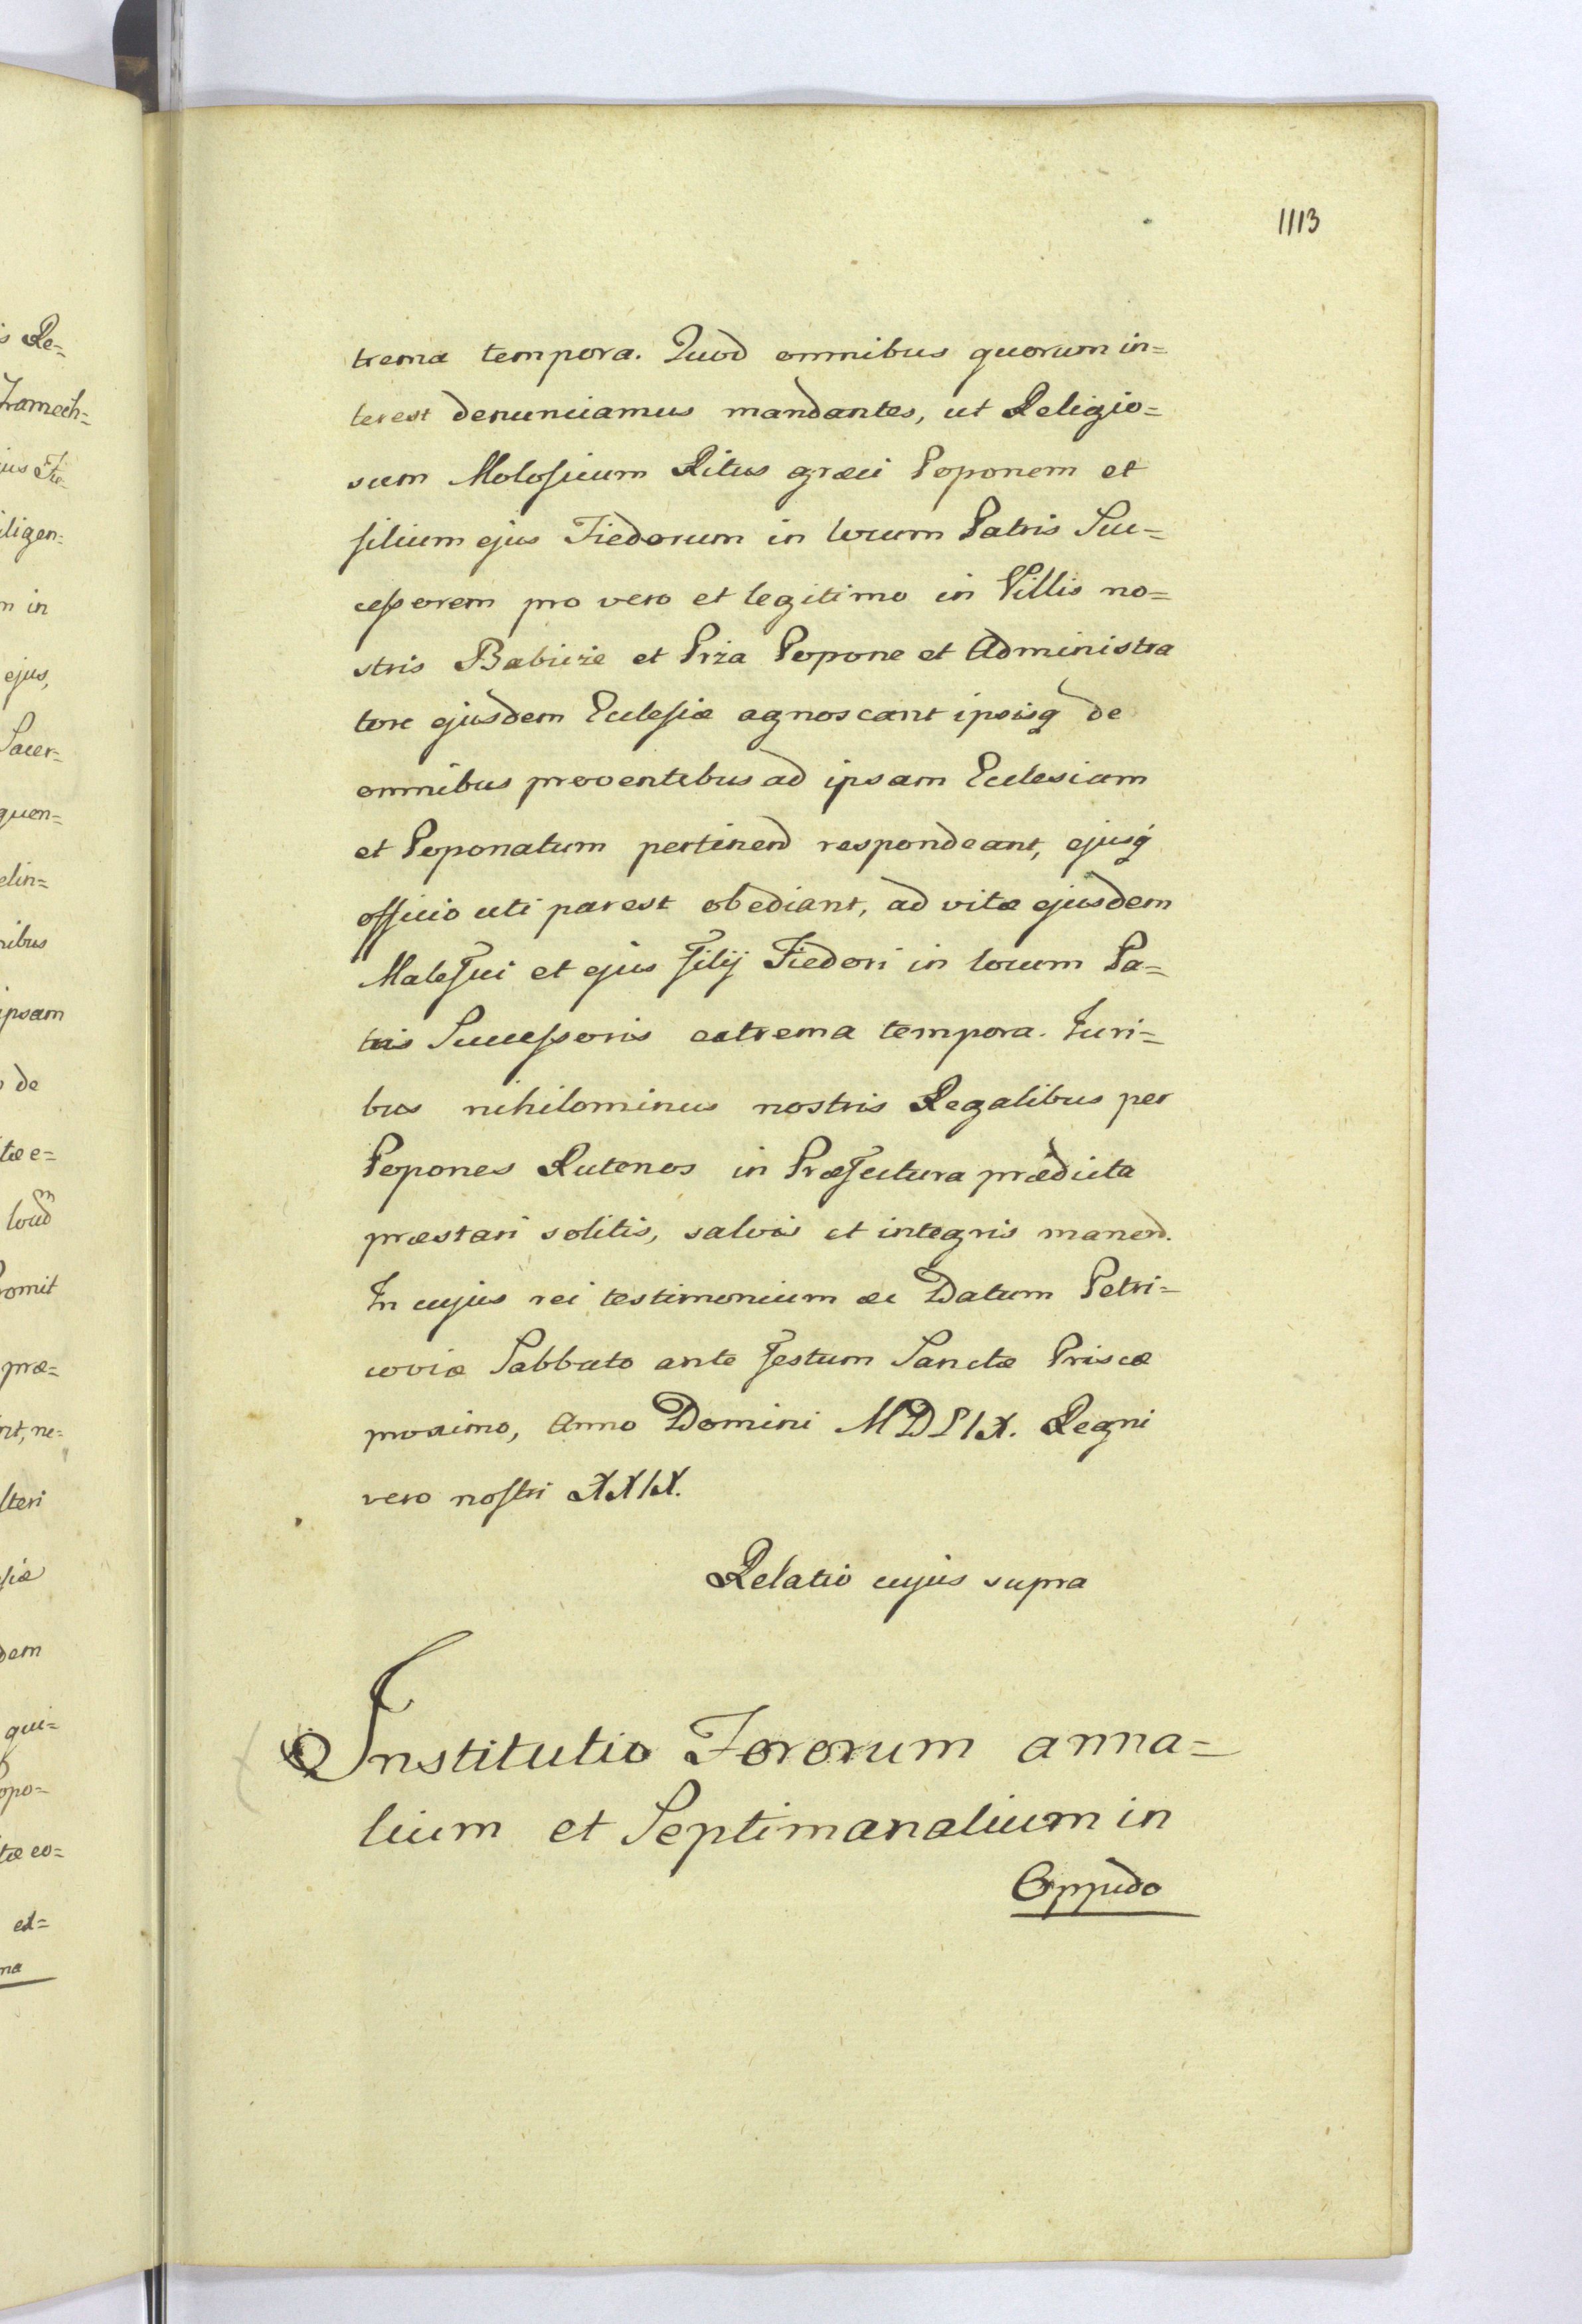 1113
trema tempora. Quod omnibus quorum in=
terest denunciamus mandantes, ut Religio=
sum Molosicum Ritus græci Poponem et
filium ejus Fiedorum in locum Patris Suc=
cessorem pro vero et legitimo in Villis no=
stris Babicze et Prza Popone et Administra
tore ejusdem Ecclesiæ agnoscant ipsisq de
omnibus proventibus ad ipsam Ecclesiam
et Poponatum pertinend respondeant, ejusq
officio uti par est obediant, ad vitæ ejusdem
Malefici et ejus Filij Fiedori in locum Pa=
tris Successoris extrema tempora. Juri=
bus nihilominus nostris Regalibus per
Popones Rutenos in Præfectura prædicta
præstari solitis, salvis et integris manend.
In cujus rei testimonium &c Datum Petri=
coviæ Sabbato ante Festum Sanctæ Priscæ
proximo, Anno Domini MDLIX. Regni
vero nostri XXIX.
Relatio cujus supra
Institutio Fororum anna=
lium et Septimanalium in
Oppido
s Re=
Framech=
jus Fie=
iligen=
m in
ejus,
Sacer=
quen=
elin=
nibus
ipsam
de
tæ e=
romit
præ=
nt, ne=
lteri
siæ
dem
qui=
opo=
tæ eo=
ex=
ma